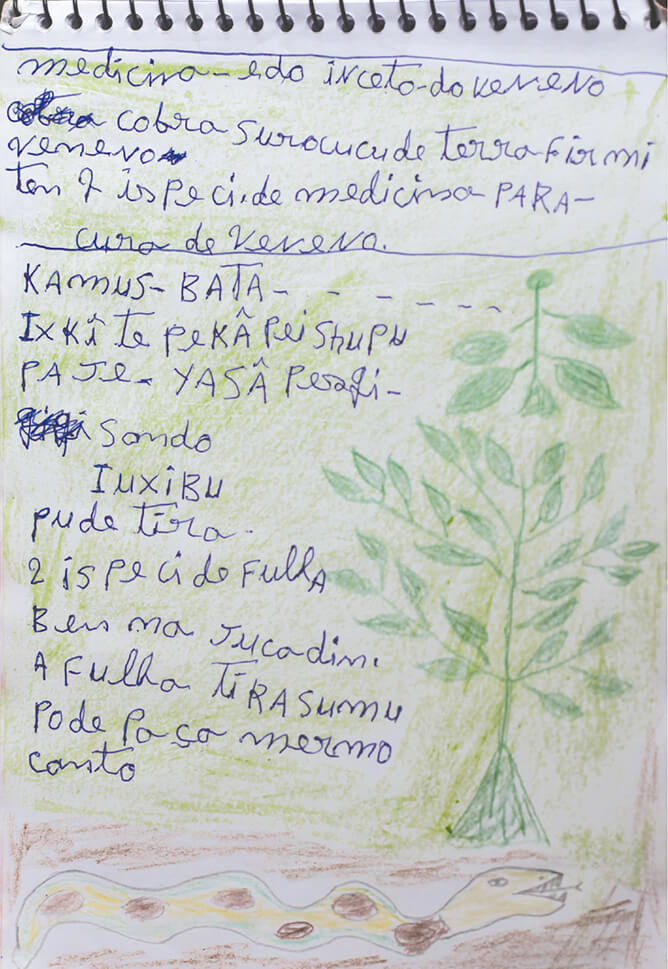 medicina-edo inceto-do veneno
cobra surocucu de terra firmi
veneno
ten 2 ispeci.de medicina PARA-
cura de veneno.
KAMUS- BATA- - - - - - -
IXKÎ te PEKÂ Pei SHUPU
PAJE- YASÂ
Sando
IUXIBU
pude tira.
2 ispeci do Fulha
Ben ma Jucadin.
A Fulha TiRA SUMU
Pode Paça mermo
canto